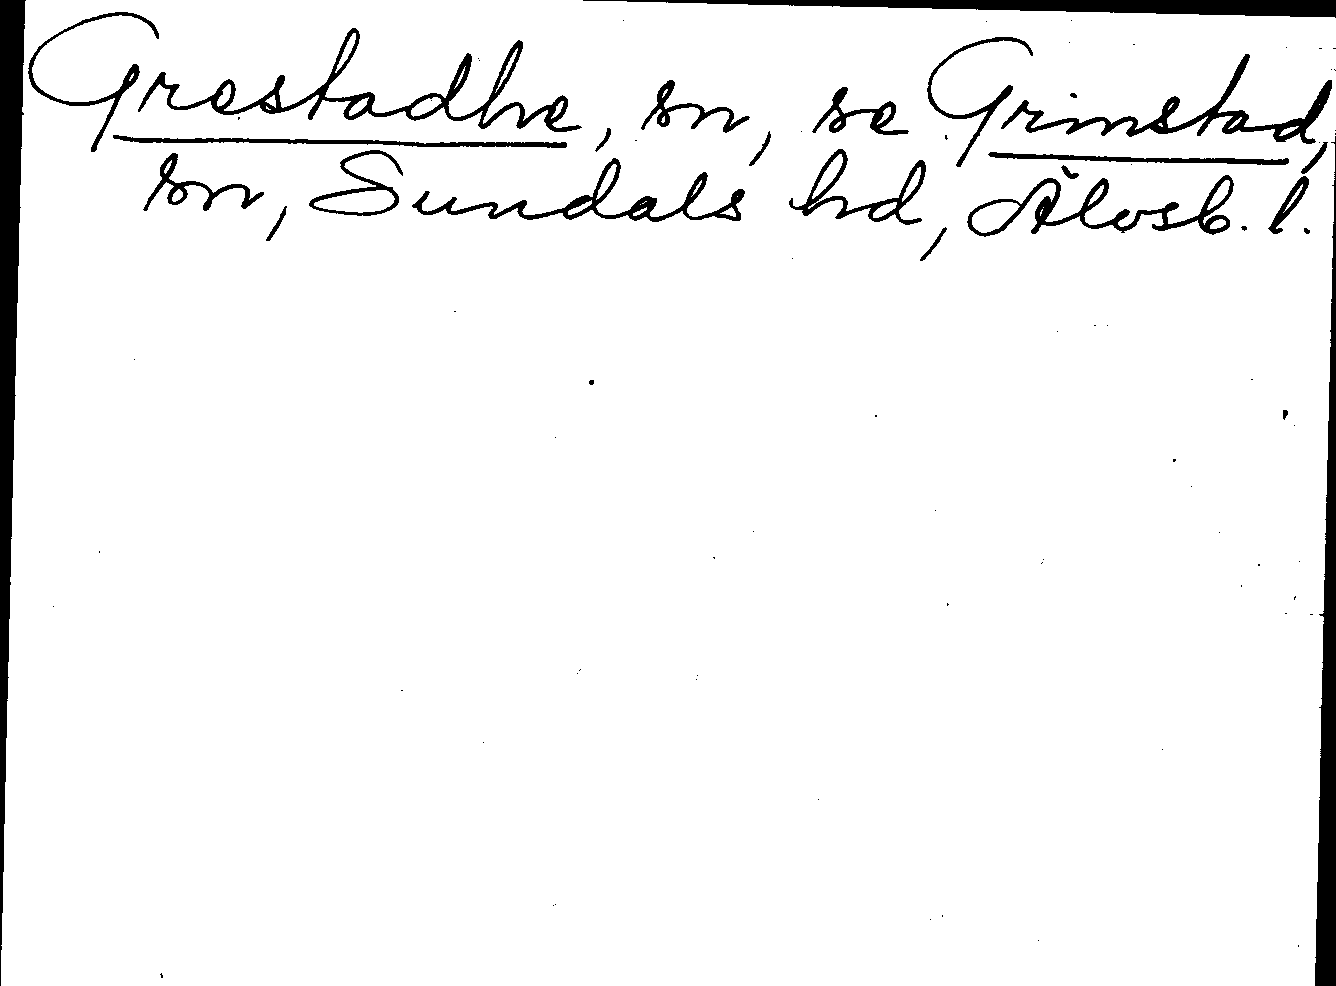 Grestadhe, sn, se Grimstad,
sn, Sundals hd, Älvsb. l.